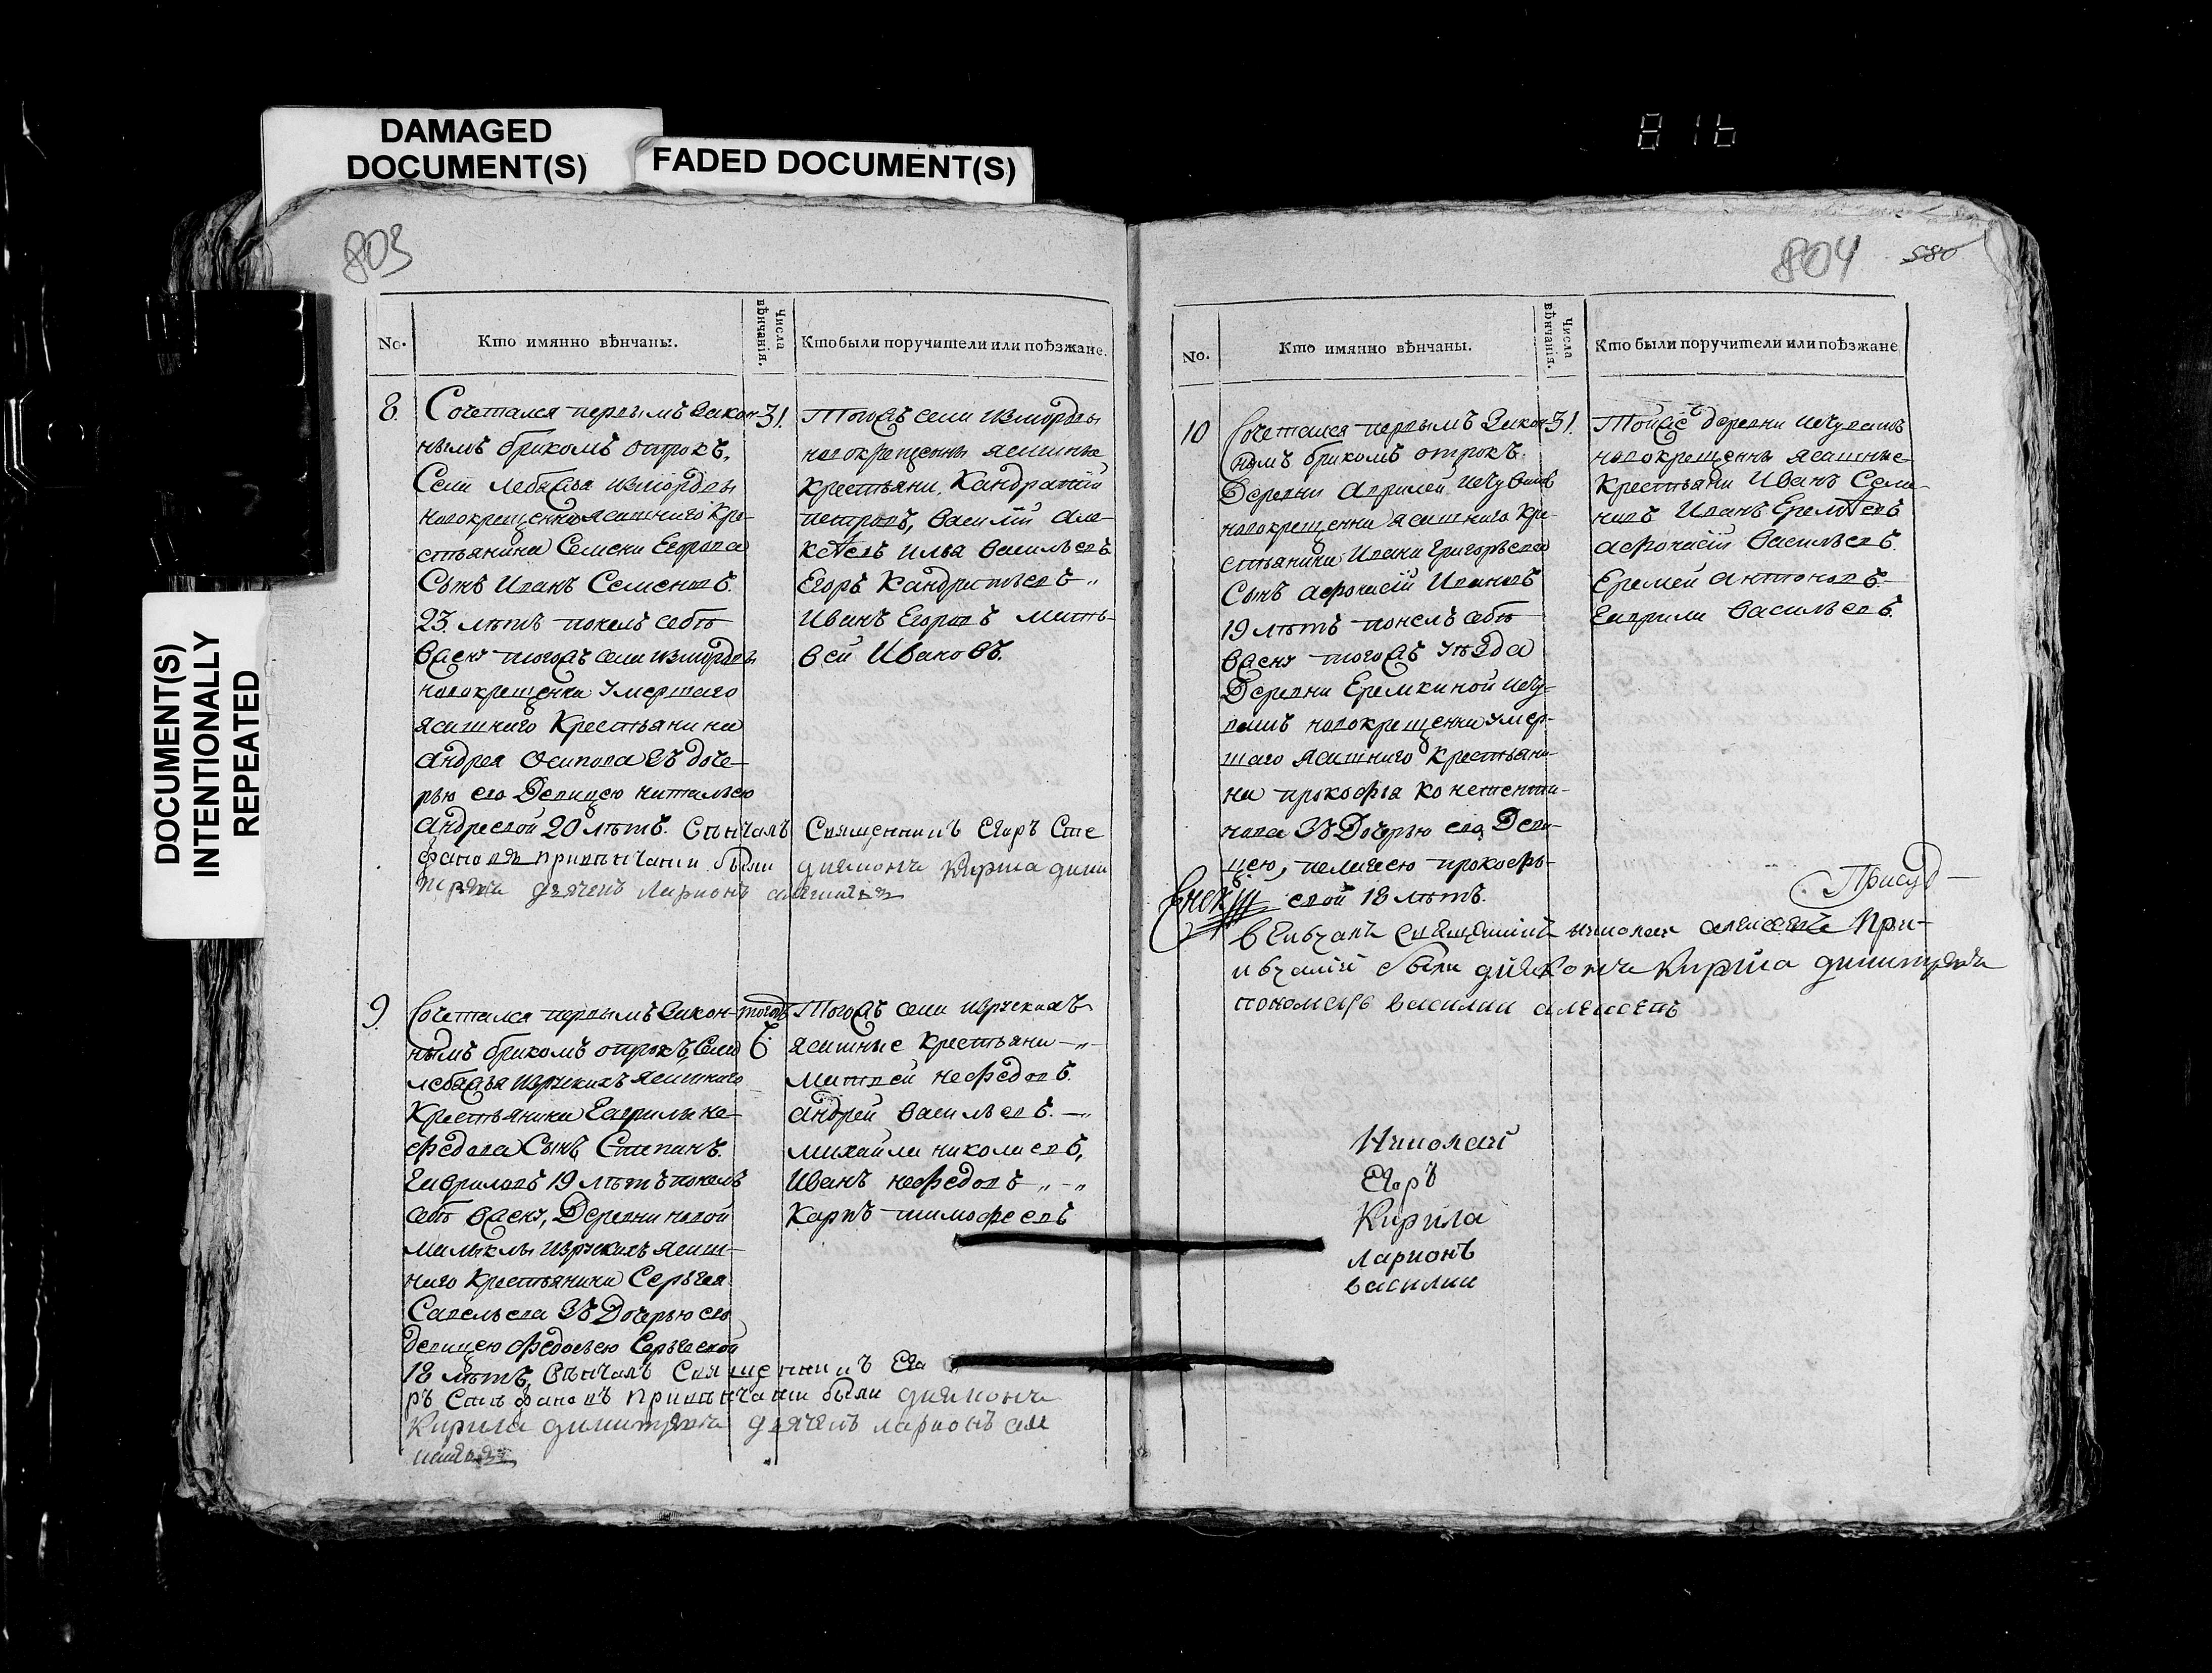 DAMAGED
DOCUMENT(S)
FADED DOCUMENT(S)
816
DOCUMENT(S)
INTENTIONALLY
REPEATED
803
No.
Кто имянно вѣнчаны.
Числа
вѣнчанія.
Кто были поручители или поѣзжане.
8. Сочетался первымъ закон-
нымъ бракомъ отрокъ,
Села Лебяжья измордвы
новокрещенна ясашнаго кре-
стьянина Семена Егорова
Сынъ Иванъ Семеновъ.
23. лѣтъ понелъ себѣ
вжену тогожъ села измордвы
новокрещенна умершаго
ясашнаго Крестьянина
Андрея Осипова зъ доче-
рью его Девицею наталью
Андревой 20 лѣтъ. Венчалъ Священникъ Егоръ Сте
фановъ привѣнчании были диаконъ Кирила дими
триевъ дьячекъ Ларионъ
31.
Тогожъ села измордвы
новокрещенны ясашные
Крестьяни, Кандратий
петровъ, Василий Але-
ксѣевъ илья Васильевъ
Егоръ Кандратьевъ „
Иванъ Егоровъ Матъ-
вей Ивановъ.
9. Сочетался первымъ закон-
нымъ бракомъ отрокъ, Села
лебяжья изрускихъ ясашнаго
Крестьянина Гаврилы не-
федова Сынъ Степанъ
Гавриловъ 19 лѣтъ понелъ
себѣ вжену, Деревни новой
малыклы изрускихъ ясаш-
наго Крестьянина Сергея
Савельева зъ Дочерью его
девицею Федосьею Сергеевой
18 лѣтъ, Вѣнчалъ Священникъ Его
ръ Стефановъ привѣнчании были диаконъ
Кирила димитриевъ дьячекъ ларионъ але
тогожъ
Тогожъ села изрускихъ
ясашные крестьяни — „
Матвей нефедовъ.
Андрей Васильевъ. — „
михайла николаевъ,
Иванъ нефедовъ „ — „
Карпъ тимофеевъ
804 580
No.
Кто имянно вѣнчаны.
Числа
вѣнчанія.
Кто были поручители или поѣзжане
10 Сочетался первымъ закон-
нымъ бракомъ отрокъ.
Деревни Априлей изчувашъ
новокрещенна ясашнаго кре-
стьянина Ивана Григорьева
Сынъ Афонасій Ивановъ
19 лѣтъ понелъ себѣ
вжену тогожъ уѣзда
Деревни Еремкиной изчу-
вашъ новокрещенна умер-
шаго ясашнаго Крестьяни-
на прокофья констенти-
нова зъ Дочерью его, Деви-
цею, пелагеею прокофь-
евой 18 лѣтъ.
31.
Тойже деревни изчувашъ
новокрещенны ясашные
Крестьяни Иванъ Семе-
новъ Иванъ Еремѣевъ
Афонасій Васильевъ.
Еремей Антоновъ.
Гаврила Васильевъ.
Присуд —
вѣнчалъ священникъ николай алексеевъ При-
вѣчаніи были диаконъ Кирила димитриевъ
пономарь василии алексеевъ
Николай
Егоръ
Кирила
Ларионъ
василии